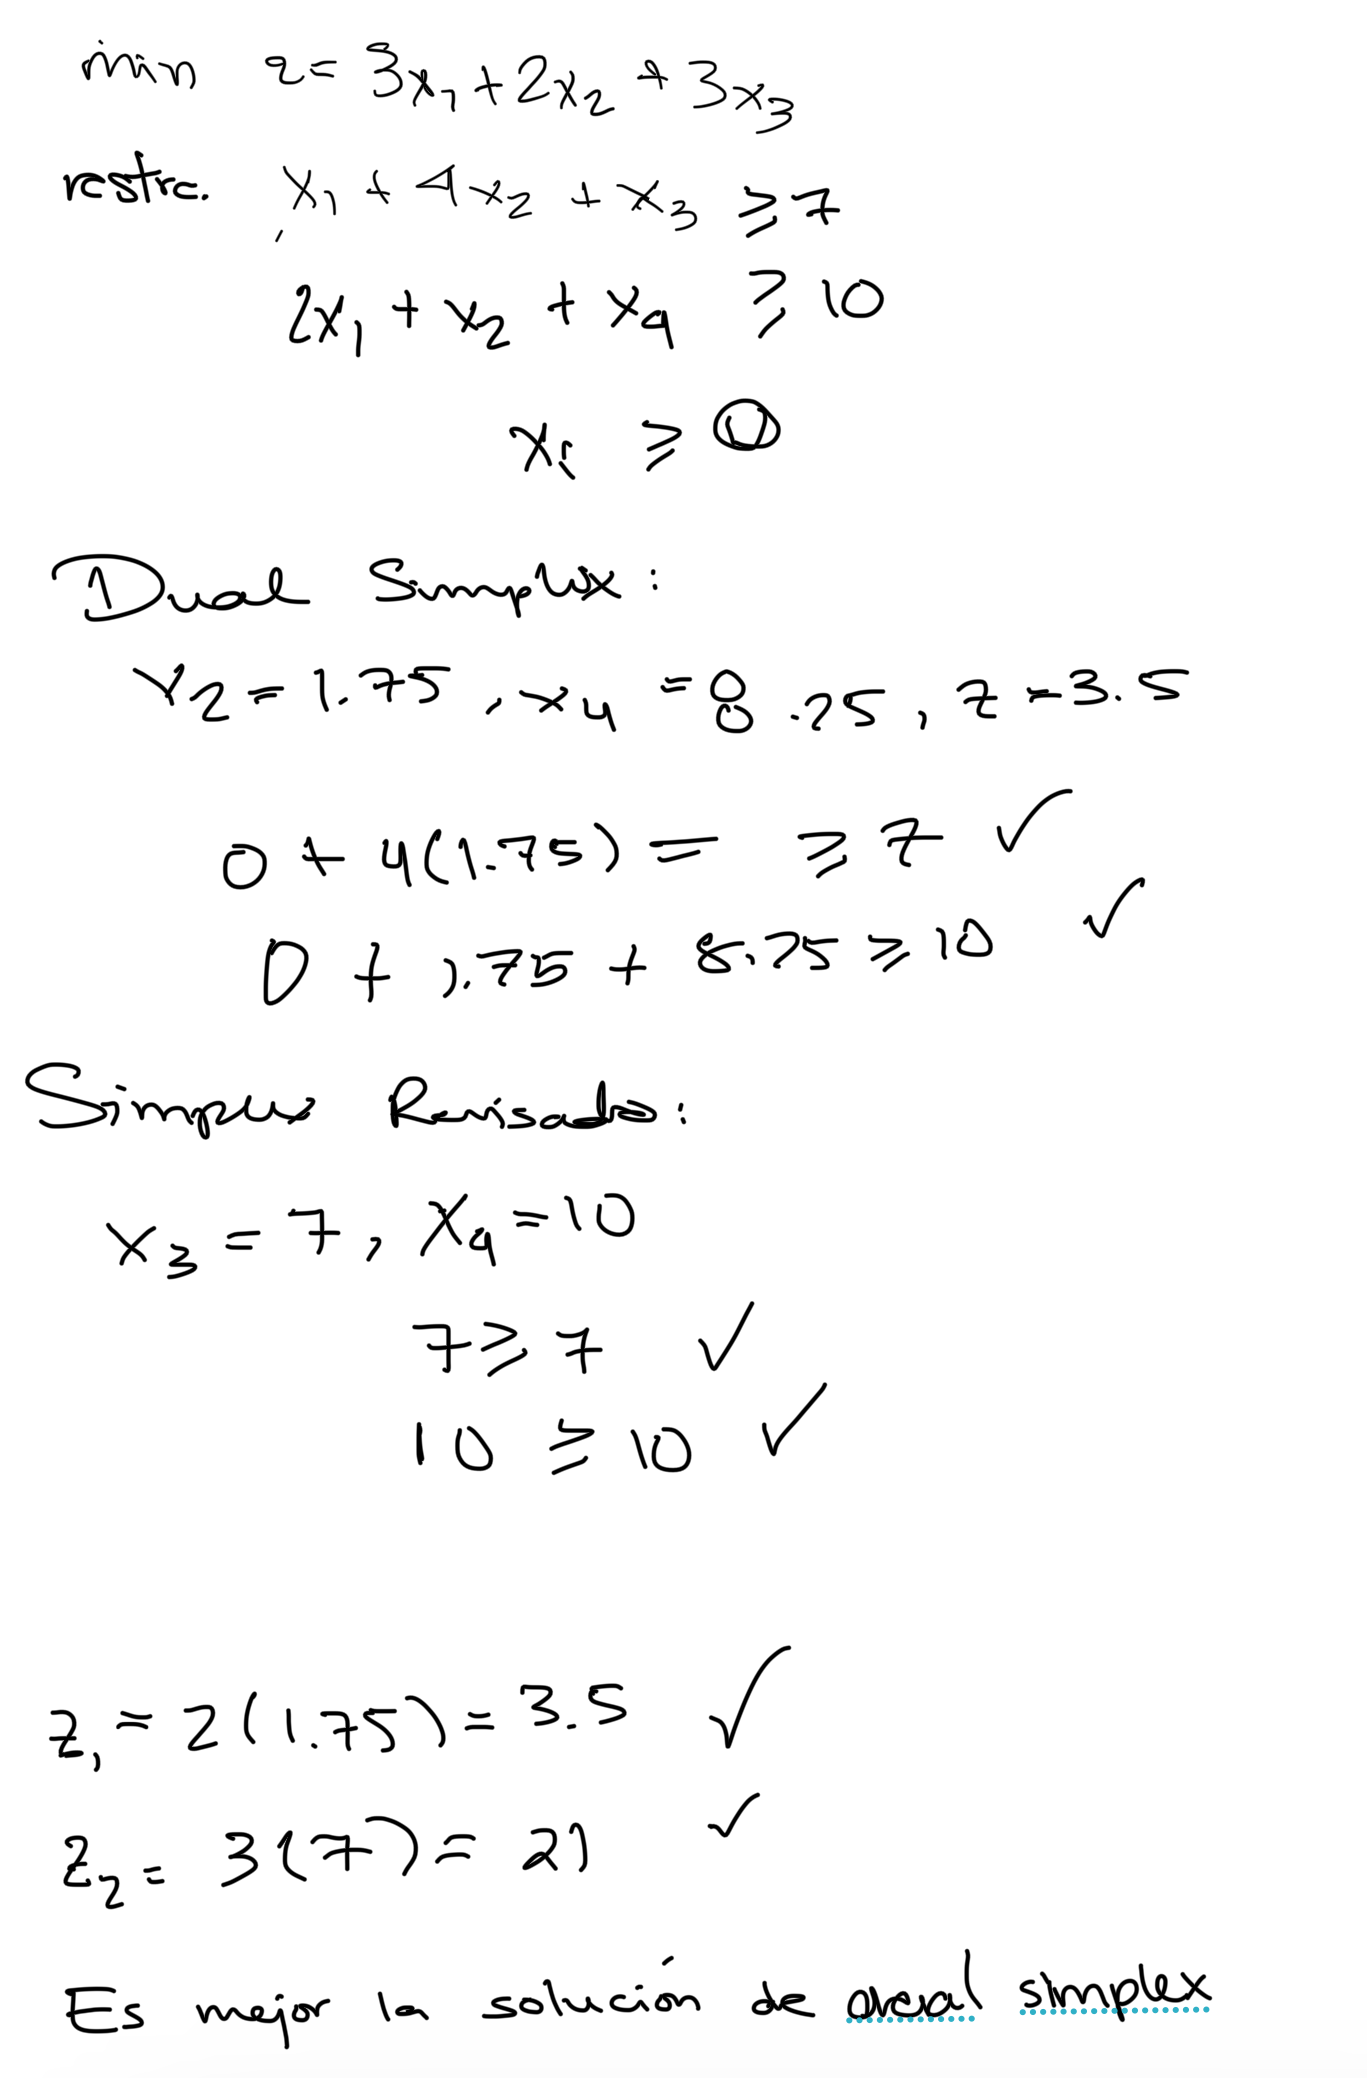 min z = 3x₁ + 2x₂ + 3x₃
restrc. x₁ + 4x₂ + x₃ ≥ 7
2x₁ + x₂ + x₄ ≥ 10
xᵢ ≥ 0
Dual Simplex:
x₂ = 1.75, x₄ = 8.25, z = 3.5
0 + 4(1.75) = ≥ 7 ✓
0 + 1.75 + 8.25 ≥ 10 ✓
Simplex Revisado:
x₃ = 7, x₄ = 10
7 ≥ 7 ✓
10 ≥ 10 ✓
z₁ = 2(1.75) = 3.5 ✓
z₂ = 3(7) = 21 ✓
Es mejor la solución de dual simplex